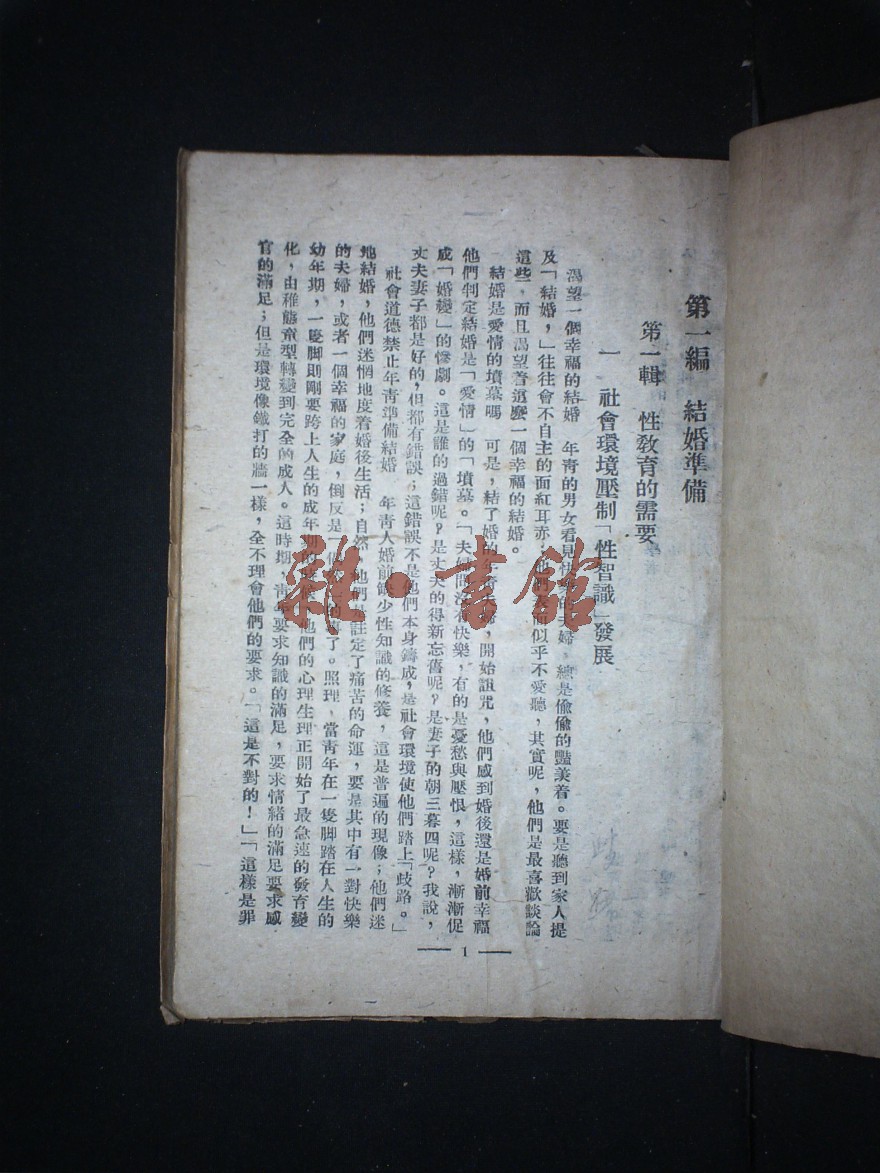 第一編　結婚準備
第一輯　性敎育的需要
一　社會環境壓制「性智識」發展
渴望一個幸福的結婚　年靑的男女看見快樂的夫婦，總是偷偷的豔美着。要是聽到家人提
及「結婚，」往往會不自主的面紅耳赤，他們表面似乎不愛聽，其實呢，他們是最喜歡談論
這些，而且渴望着這麽一個幸福的結婚。
結婚是愛情的墳墓嗎　可是，結了婚的年靑夫婦，開始詛咒，他們感到婚後還是婚前幸福
他們判定結婚是「愛情」的「墳墓。「夫婦間沒有快樂，有的是憂愁與壓恨，這樣，漸漸促
成「婚變」的慘劇。這是誰的過錯呢？是丈夫的得新忘舊呢？是妻子的朝三暮四呢？我說，
丈夫妻子都是好的，但都有錯誤；這錯誤不是他們本身鑄成，是社會環境使他們踏上「歧路。」
社會道德禁止年靑準備結婚　年靑人婚前缺少性知識的修養，這是普遍的現像；他們迷
地結婚，他們迷惘地度着婚後生活；自然，他們是註定了痛苦的命運，要是其中有一對快樂
的夫婦，或者一個幸福的家庭，倒反是一個了。照理，當靑年在一隻脚踏在人生的
幼年期，一隻脚則剛要跨上人生的成年期的時候，他們的心理生理正開始了最急速的發育變
化，由稚態童型轉變到完全的成人。這時期，靑年要求知識的滿足，要求情緖的滿足要求感
官的滿足；但是環境像鐵打的牆一樣，全不理會他們的要求。「這是不對的！」「這樣是罪
1
雜·書館